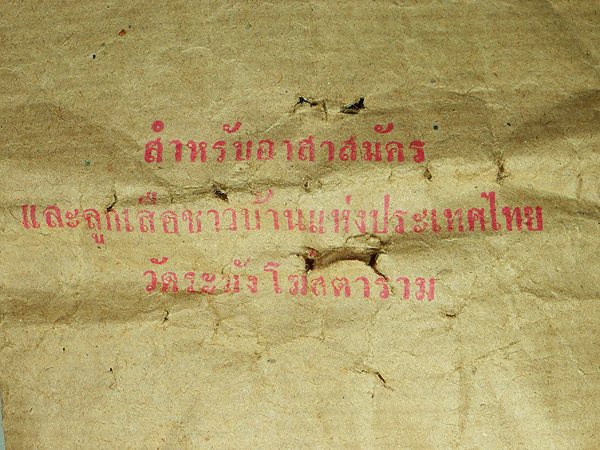 สำหรับอาสาสมัคร
และลูกเสือชาวบ้านแห่งประเทศไทย
วัดระฆังโฆสิตาราม